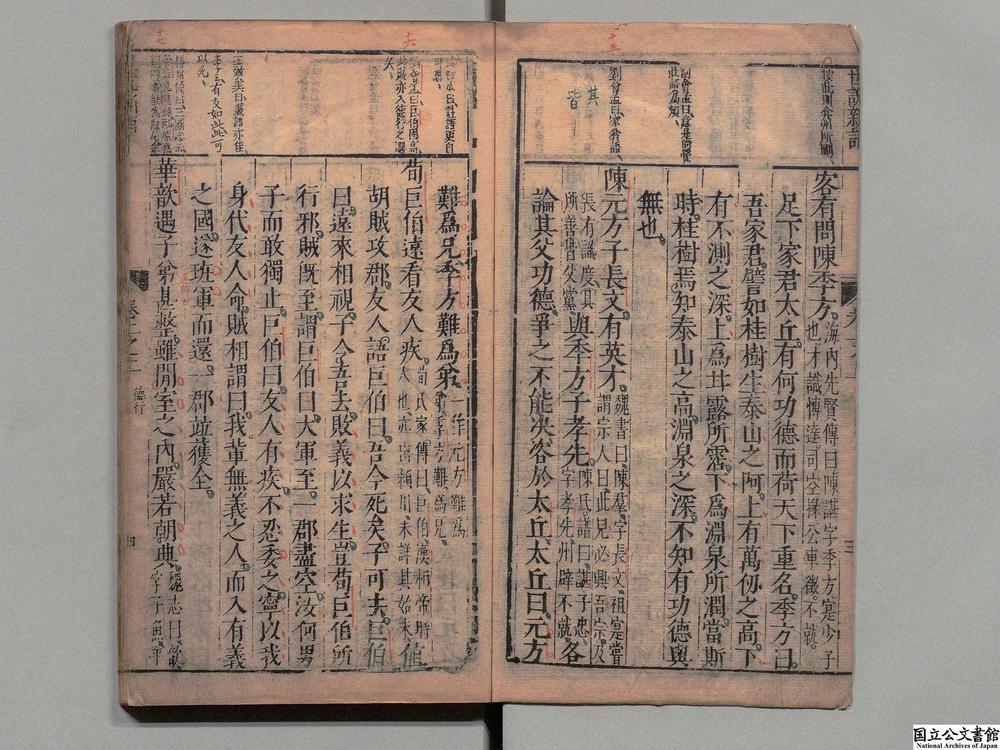 客有問陳季方海內先賢傳曰陳諶字季方寔少子
也才識愽達司空掾公車徵不就
足下家君太丘有何功德而荷天下重名季方曰
吾家君譬如桂樹生泰山之阿上有萬仞之高下
有不測之深上為甘露所霑下為淵泉所潤當斯
時桂樹焉知泰山之高淵泉之深不知有功德與
無也
劉會孟曰家翁語
其
皆
陳元方子長文有英才魏書曰陳羣字長文祖寔嘗
謂宗人曰此兒必興吾宗及
長有識度其
所善皆父黨與季方子孝先陳氏譜曰諶子忠
字孝先州辟不就各
論其父功德爭之不能決咨於太丘太丘曰元方
難為兄季方難為弟一作元方難為
弟季方難為兄
荀巨伯遠看友人疾荀氏家傳曰巨伯漢桓帝時
人也亦出潁川未詳其始末值
胡賊攻郡友人語巨伯曰吾今死矣子可去巨伯
曰遠來相視子令吾去敗義以求生豈荀巨伯所
行邪賊既至謂巨伯曰大軍至一郡盡空汝何男
子而敢獨止巨伯曰友人有疾不忍委之寧以我
身代友人命賊相謂曰我輩無義之人而入有義
之國遂班軍而還一郡竝獲全
有友如此可
以死
華歆遇子弟甚整雖閒室之內嚴若朝典魏志曰歆
字子魚平
卷上之上
德行
四
国立公文書館
National Archives of Japan